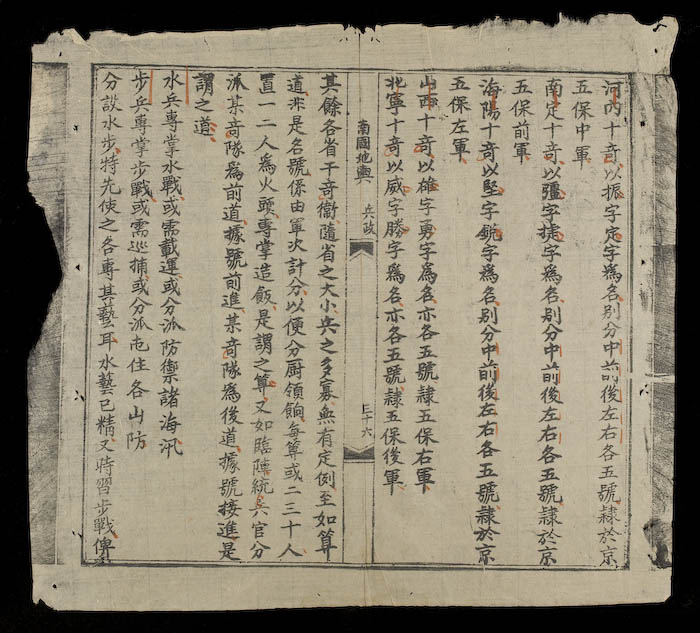 河内十奇以振字定字為名别分中前後左右各五號隸於京
五保中軍
南定十奇以彊字捷字為名别分中前後左右各五號隸於京
五保前軍
海陽十奇以堅字銳字為名别分中前後左右各五號隸於京
五保左軍
山西十奇以雄字勇字為名亦各五號隸五保右軍
北寧十奇以威字勝字為名亦各五號隸五保後軍
南國地輿 兵政 三十六
其餘各省干奇衛隨省之大小兵之多寡無有定例至如算
道非是名號係由軍次計分以便分厨領餉每算或二三十人
置一二人為火頭專掌造飯是謂之算又如臨陣統兵官分
派某奇隊為前道據號前進某奇隊為後道據號接進是
謂之道
水兵專掌水戰或需載運或分派防禦諸海汛
步兵專掌步戰或需巡捕或分派屯住各山防
分設水步特先使之各專其藝耳水藝已精又時習步戰俾